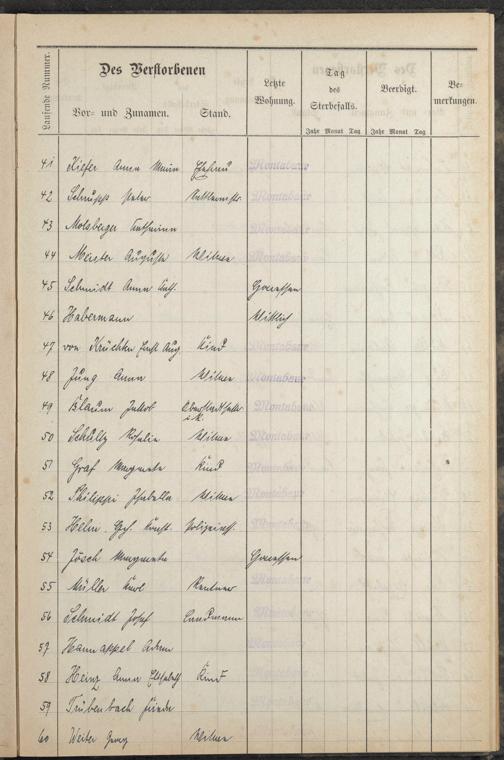 Laufende Nummer.
Des Verstorbenen
Vor- und Zunamen. Stand.
Letzte Wohnung.
Tag des Sterbefalls.
Beerdigt.
Bemerkungen.
Jahr Monat Tag Jahr Monat Tag
41 Kiefer Anna Maria Ehefrau Montabaur
42 Schupp Peter Montabaur
43 Molsberger Katharina Montabaur
44 Meister Auguste Witwe Montabaur
45 Schmidt Anna Goressen
46 Habermann Wittlich
47 von Kruchten Ernst Aug Kind Montabaur
48 Jung Anna Witwe Montabaur
49 Blaum Jakob Montabaur
50 Schultz Rosalie Witwe Montabaur
51 Graf Margareta Kind Montabaur
52 Philippi Isabella Witwe Montabaur
53 Helm Montabaur
54 Jösch Margareta Goressen
55 Müller Karl Rentner Montabaur
56 Schmidt Josef Landmann Montabaur
57 Hannappel Adam Montabaur
58 Heinz Anna Elisabeth Kind Montabaur
59 Trübenbach Montabaur
60 Weiter Georg Witwer Montabaur